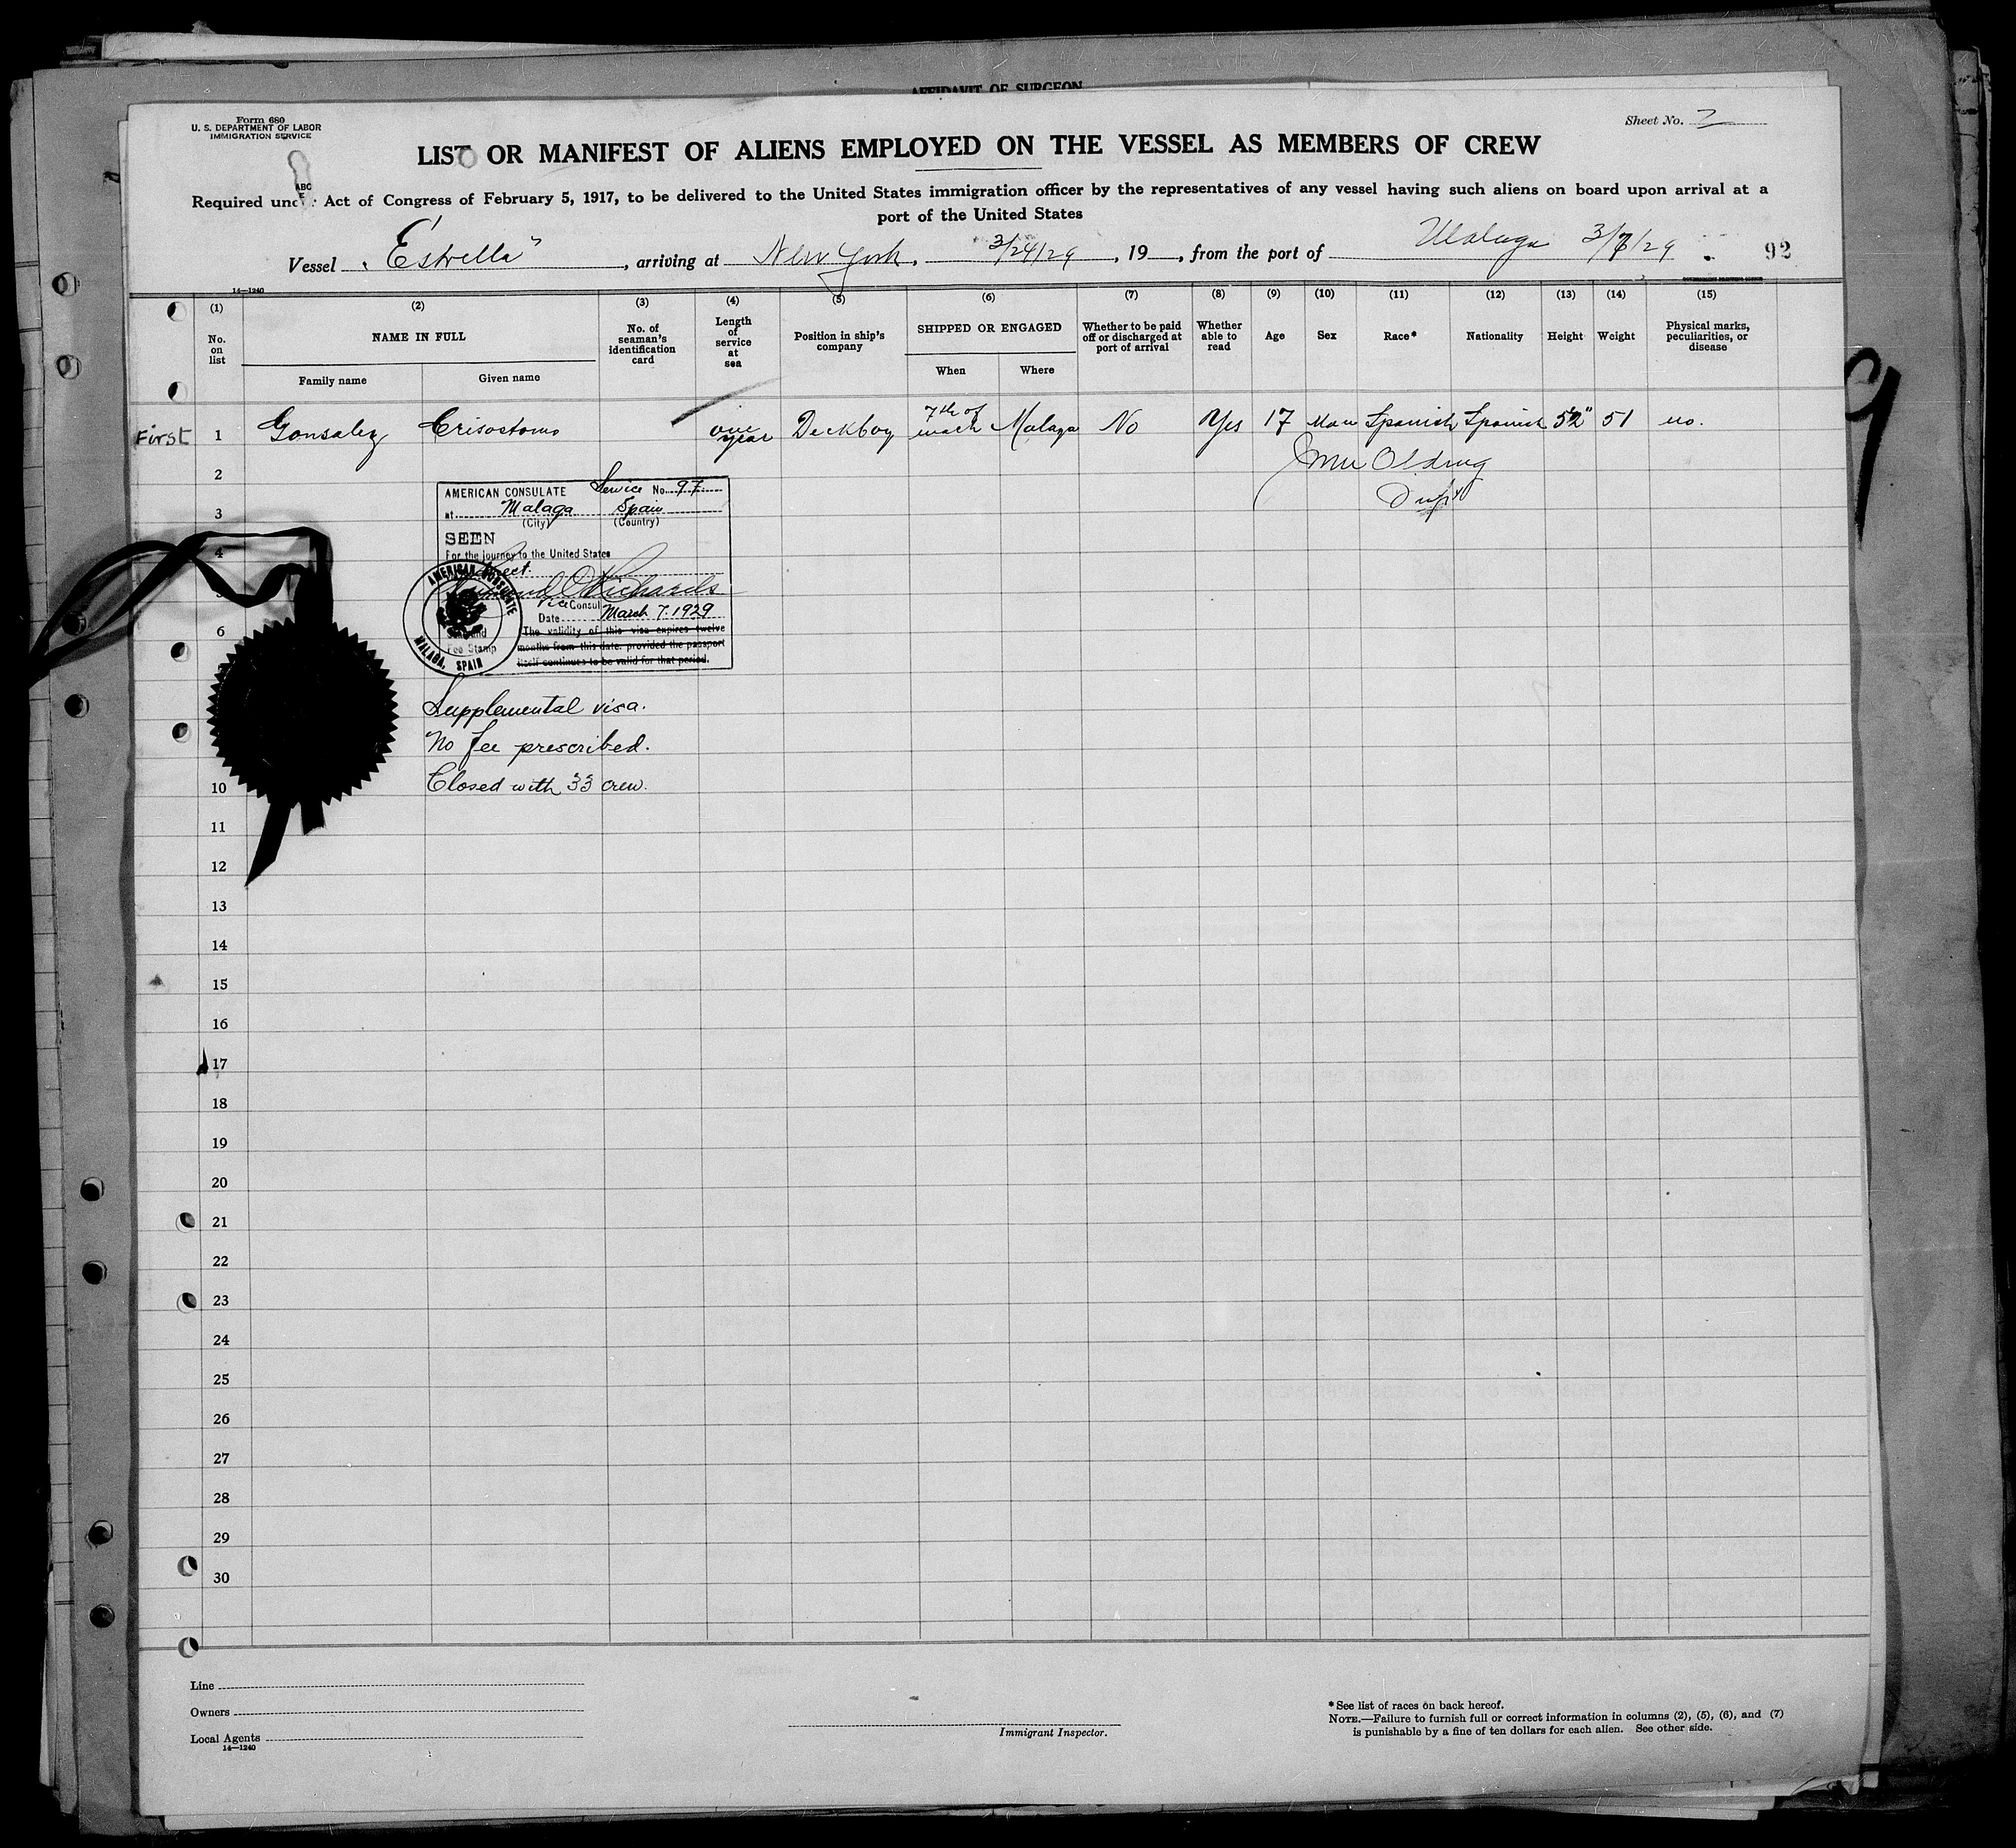 AFFIDAVIT OF SURGEON
Form 680
U. S. DEPARTMENT OF LABOR
IMMIGRATION SERVICE
Sheet No.
LIST OR MANIFEST OF ALIENS EMPLOYED ON THE VESSEL AS MEMBERS OF CREW
Required under Act of Congress of February 5, 1917, to be delivered to the United States immigration officer by the representatives of any vessel having such aliens on board upon arrival at a
port of the United States
Vessel "Estrella", arriving at New York, 3/24/29, 19 , from the port of Malaga 3/7/29
92
14—1240
(1) (2) (3) (4) (5) (6) (7) (8) (9) (10) (11) (12) (13) (14) (15)
No. on list
NAME IN FULL
Family name
Given name
No. of seaman's identification card
Length of service at sea
Position in ship's company
SHIPPED OR ENGAGED
When
Where
Whether to be paid off or discharged at port of arrival
Whether able to read
Age
Sex
Race*
Nationality
Height
Weight
Physical marks, peculiarities, or disease
First 1 Gonsalez Crisostomo one year Deckboy 7th of march Malaga No Yes 17 Man Spanish Spanish 5'2" 51 no.
2
3
4
6
10
11
12
13
14
15
16
17
18
19
20
21
22
23
24
25
26
27
28
29
30
AMERICAN CONSULATE Service No. 97
at Malaga Spain
(City) (Country)
SEEN
For the journey to the United States
Richards
Vice Consul
Date March 7. 1929
The validity of this visa expires twelve
months from this date. provided the passport
itself continues to be valid for that period.
Fee Stamp
AMERICAN CONSULATE
MALAGA, SPAIN
Supplemental visa.
No fee prescribed.
Closed with 33 crew.
9
Line
Owners
Local Agents
14—1240
Immigrant Inspector.
*See list of races on back hereof.
NOTE.—Failure to furnish full or correct information in columns (2), (5), (6), and (7)
is punishable by a fine of ten dollars for each alien. See other side.